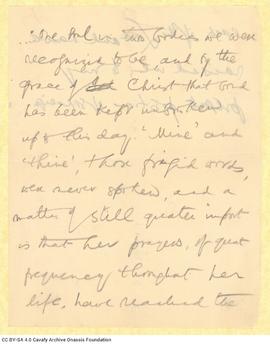 ... soul in two bodies we were
recognized to be and by the
grace of Christ that bond
has been kept unbroken
up to this day. 'Mine' and
'thine', those frigid words,
were never spoken, and a
matter of still greater import
is that her prayers, of great
frequency throughout her
life, have reached the
CC BY-SA 4.0 Cavafy Archive Onassis Foundation